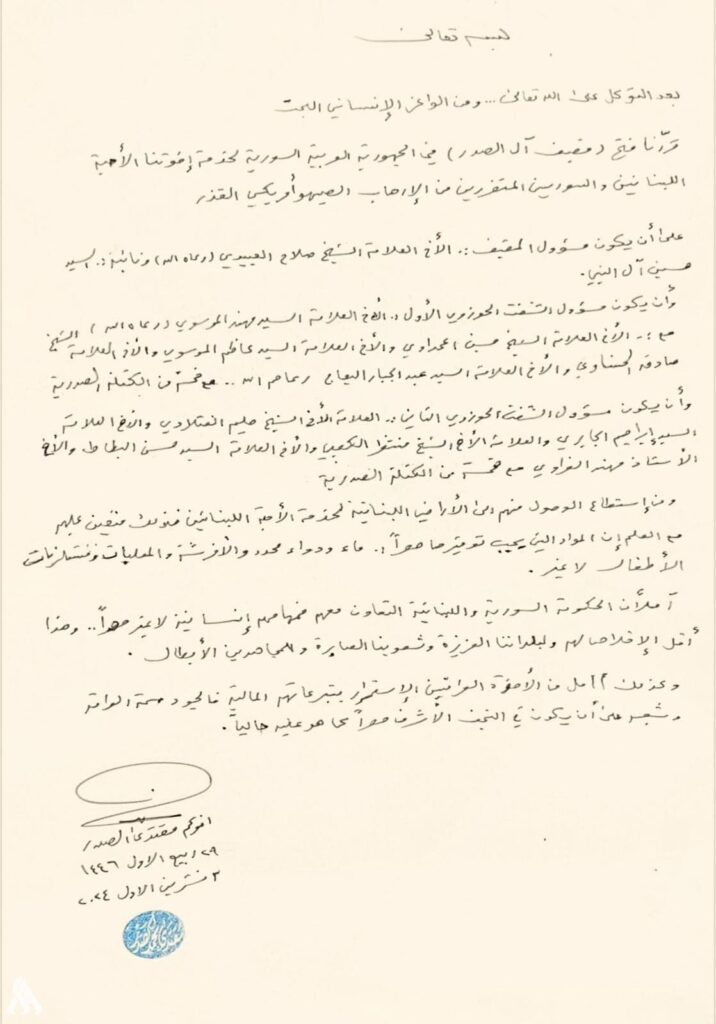 بسمه تعالى
بعد التوكل على الله تعالى... ومن الواعز الإنساني البحت
قررنا فتح (مضيف آل الصدر) في الجمهورية العربية السورية لخدمة إخوتنا الأحبة
اللبنانيين والسوريين المتضررين من الإرهاب الصهيوأمريكي القذر
على أن يكون مسؤول المضيف :. الأخ العلامة الشيخ صلاح العبيدي (رعاه الله) ونائبه :. السيد
حسين آل النبي.
وأن يكون مسؤول الشفت الحوزوي الأول :. الأخ العلامة السيد مهند الموسوي (رعاه الله) الشيخ
مع :. الأخ العلامة الشيخ حسين المحمداوي والأخ العلامة السيد كاظم الموسوي والأخ العلامة
صادق الحسناوي والأخ العلامة السيد عبد الجبار رعاهم الله .. مع خمسة من الكتلة الصدرية
وأن يكون مسؤول الشفت الحوزوي الثاني :. العلامة الأخ الشيخ حليم الفتلاوي والأخ العلامة
السيد إبراهيم الجابري والعلامة الأخ الشيخ منتظر الكعبي والأخ العلامة السيد حسن البطاط والأخ
الأستاذ مهند الغراوي مع خمسة من الكتلة الصدرية
ومن إستطاع الوصول منهم الى الأراضي اللبنانية لخدمة الأحبة اللبنانيين فذلك متعين عليهم
مع العلم إن المواد التي يجب توفيرها حصراً :. ماء ودواء محدد والأفرشة والمعلبات ومستلزمات
الأطفال لا غير .
آملاً من الحكومة السورية واللبنانية التعاون معهم فمهامهم إنسانية لا غير حصراً .. وهذا
أقل الإخلاص لهم ولبلداننا العزيزة وشعوبنا الصابرة والمجاهدين الأبطال .
وعندها آمل من الأخوة العراقيين الإستمرار بتبرعاتهم المالية فالجود سمة العراق
وشعبه على أن يكون في النجف الأشرف حصراً كما هو عليه حالياً .
اخوكم مقتدى الصدر
٢٩ ربيع الاول ١٤٤٦
٣ تشرين الاول ٢٠٢٤